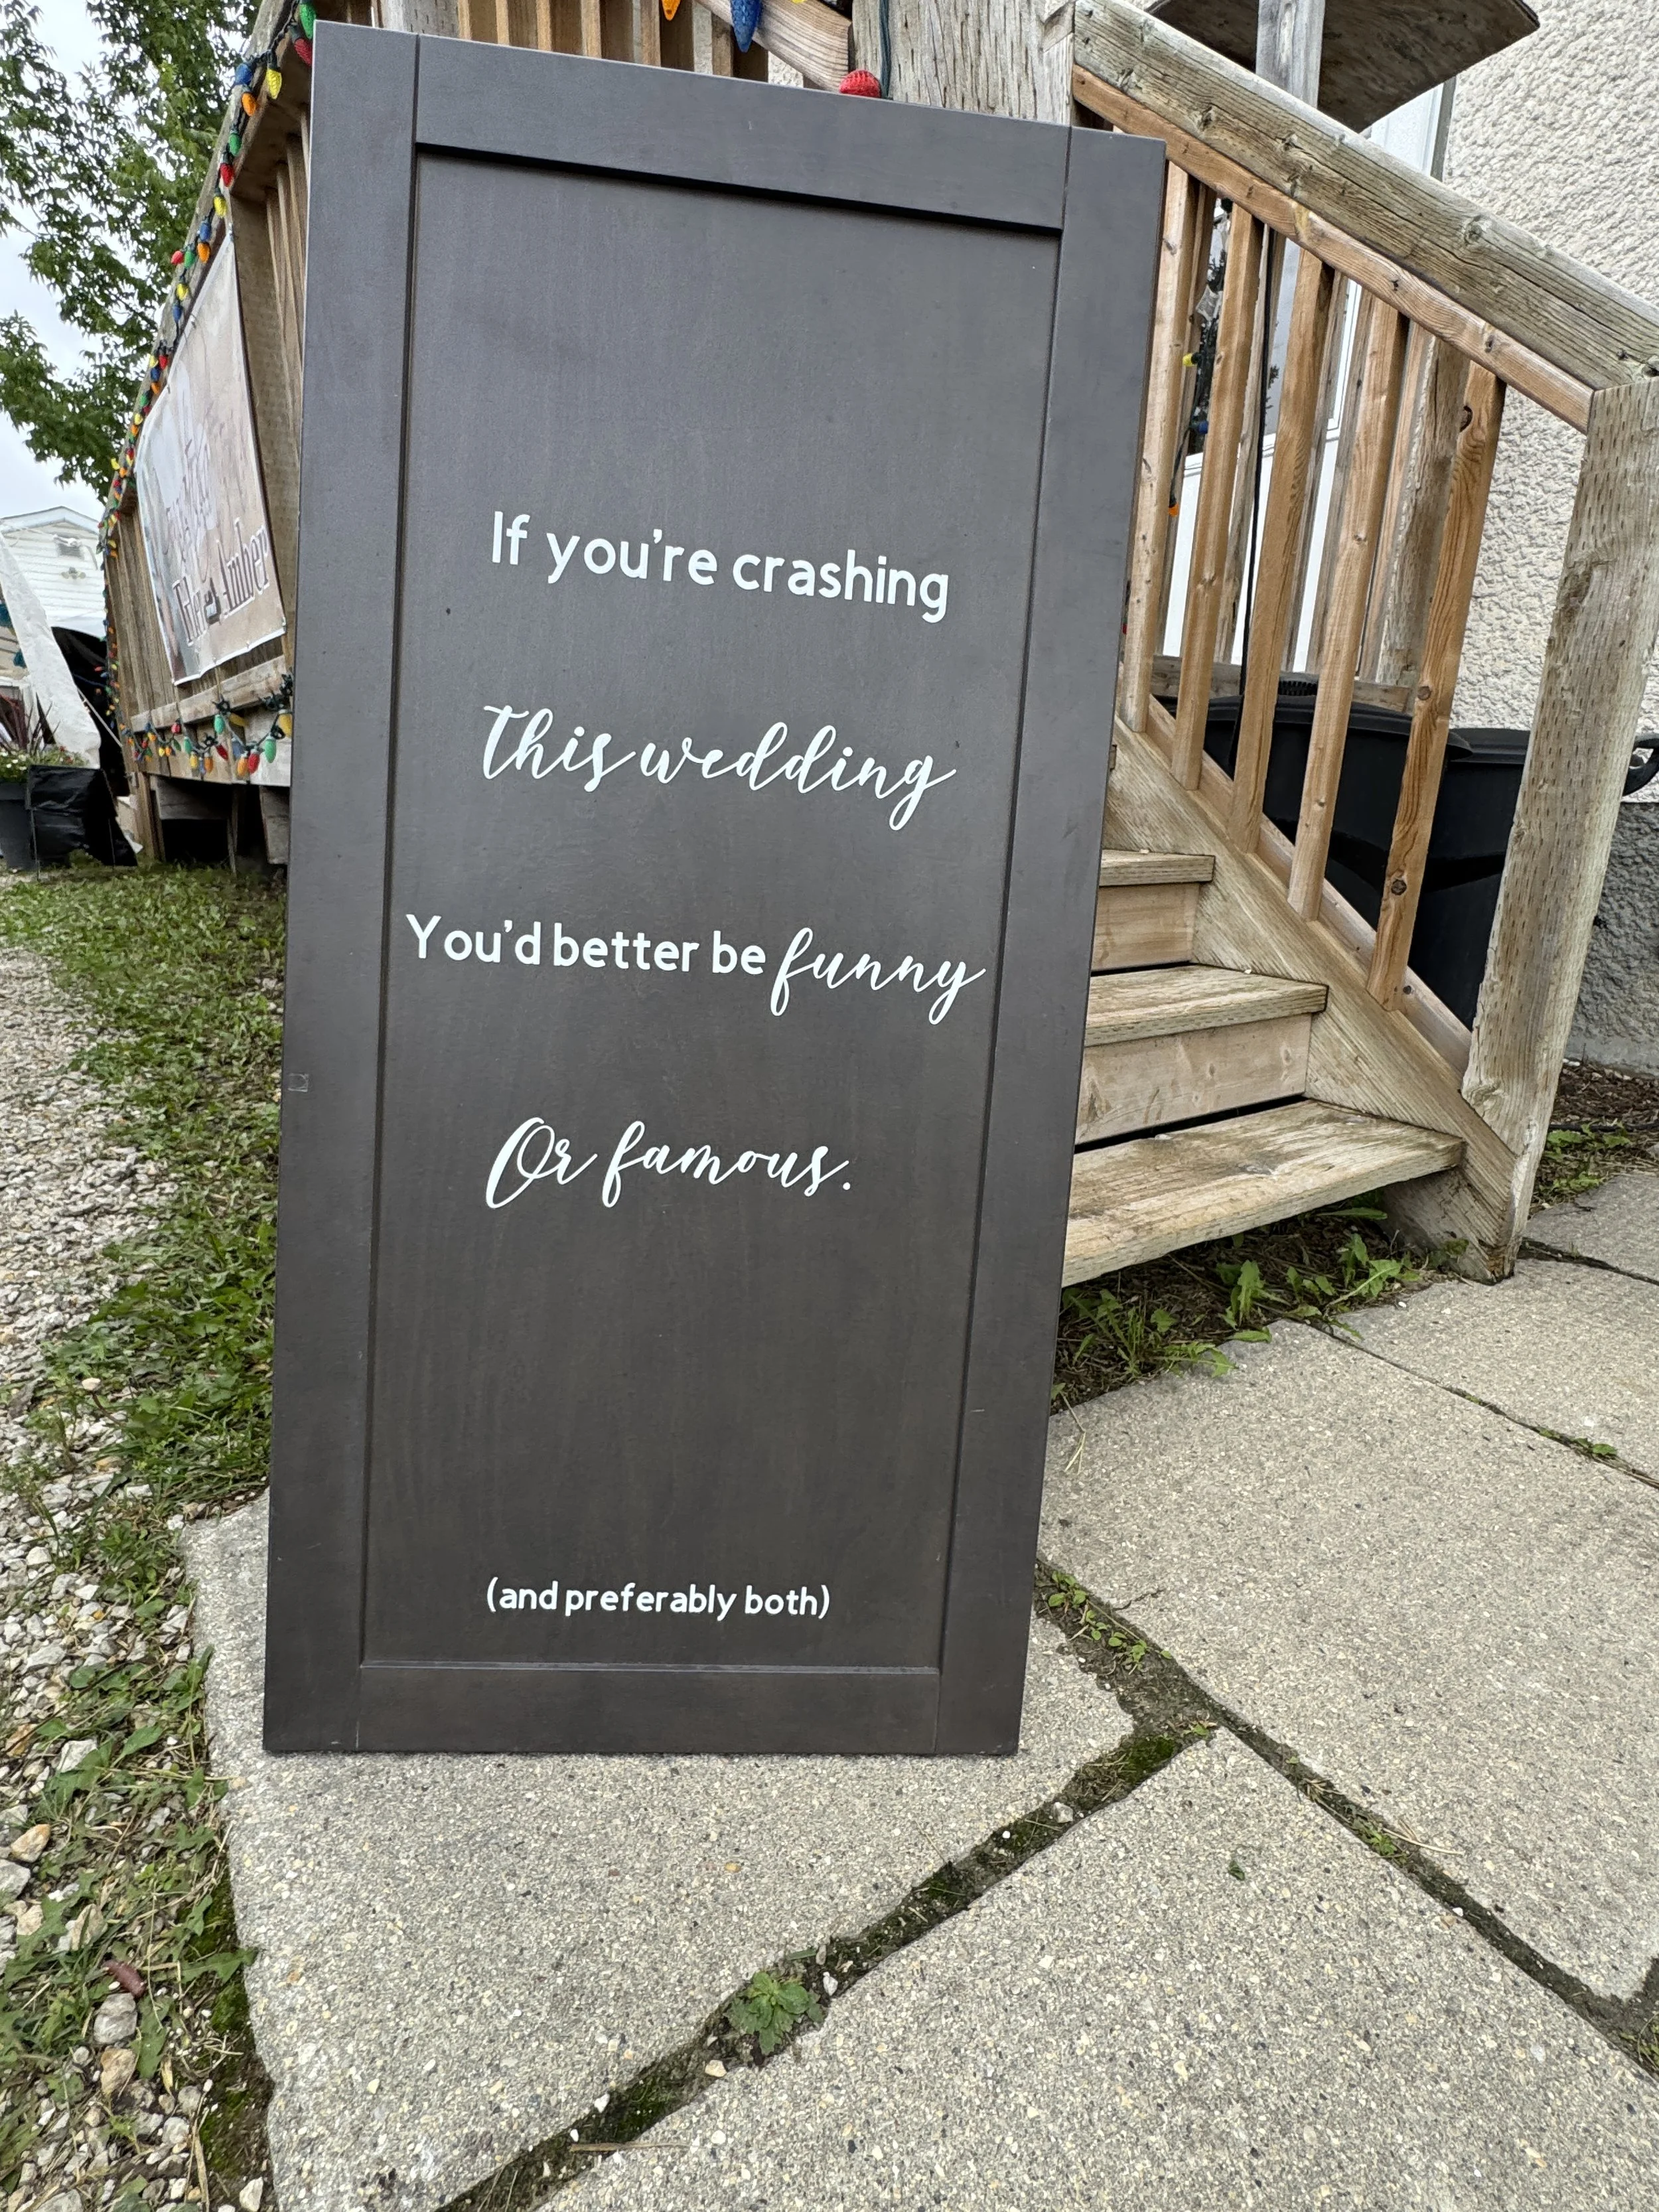 If you're crashing
this wedding
You'd better be funny
Or famous.
(and preferably both)
Amber